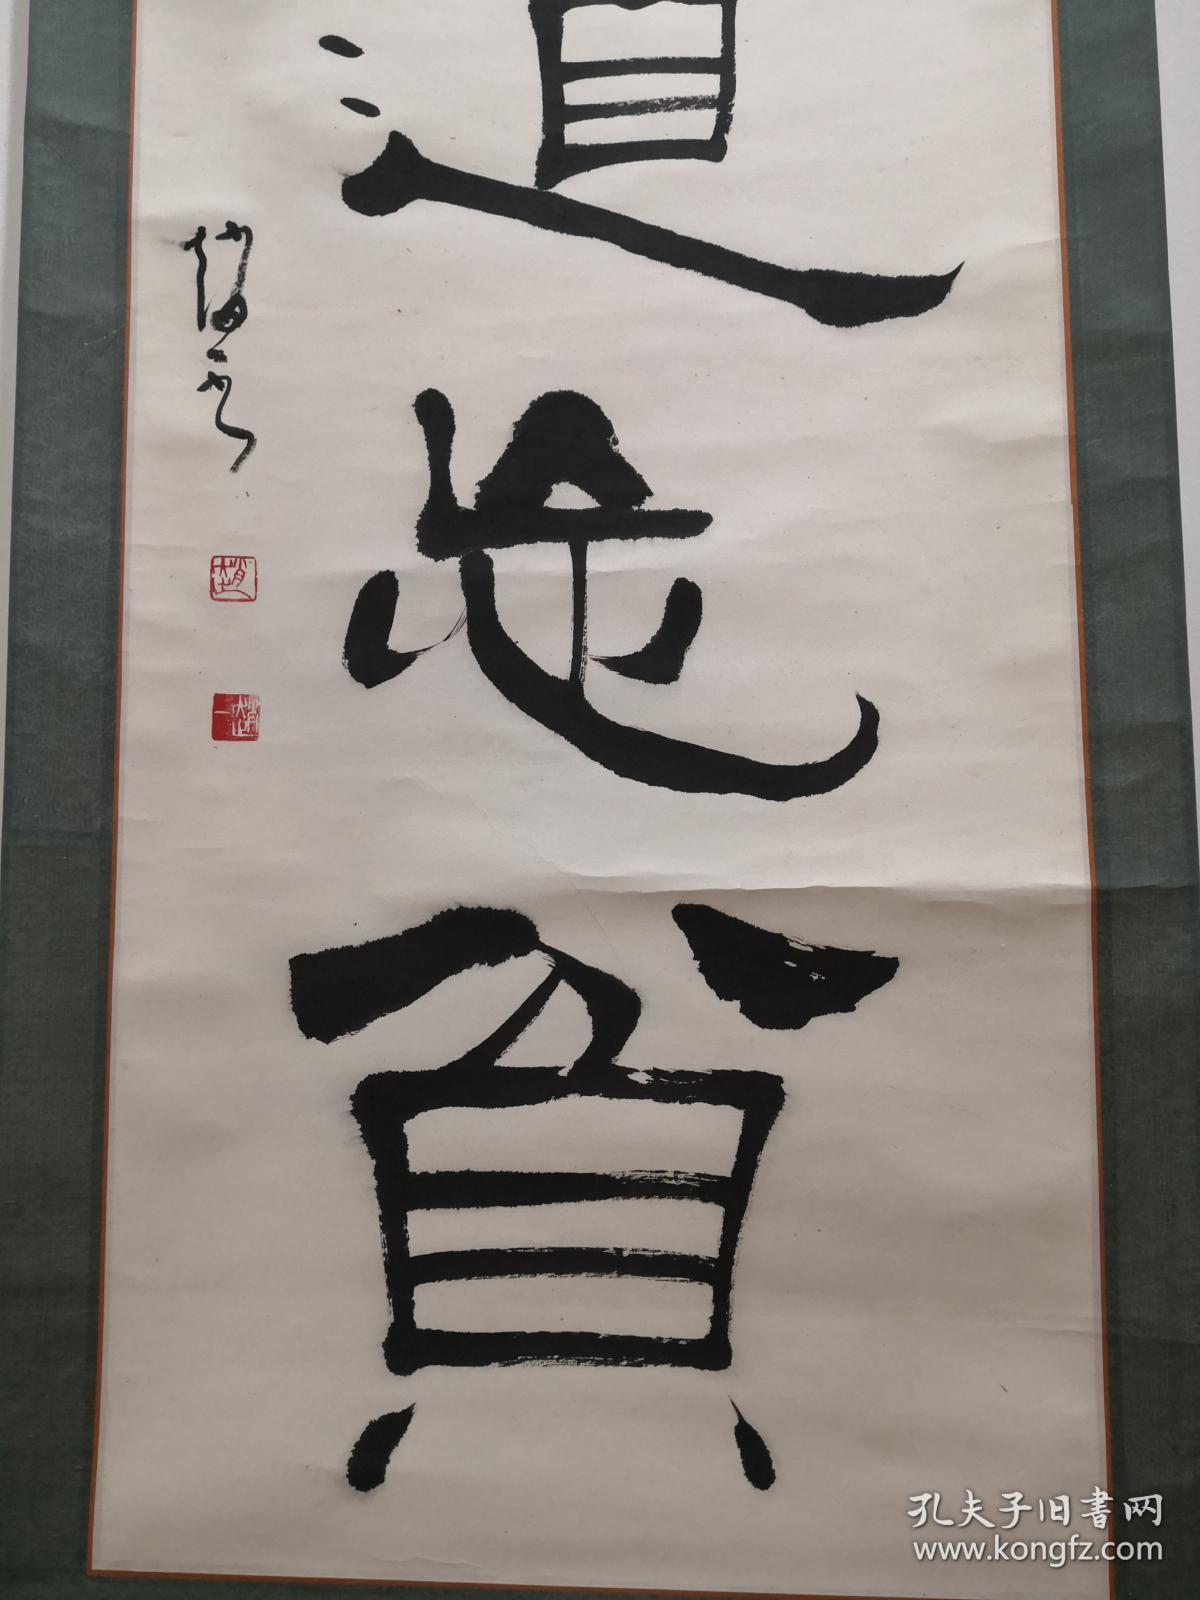 道
忘
貧
趙
趙
孔夫子旧書网
www.kongfz.com